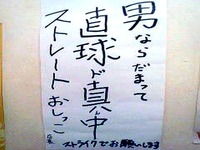 男ならだまって
直球ド真ん中
ストレートおしっこ
ストライクでお願いします